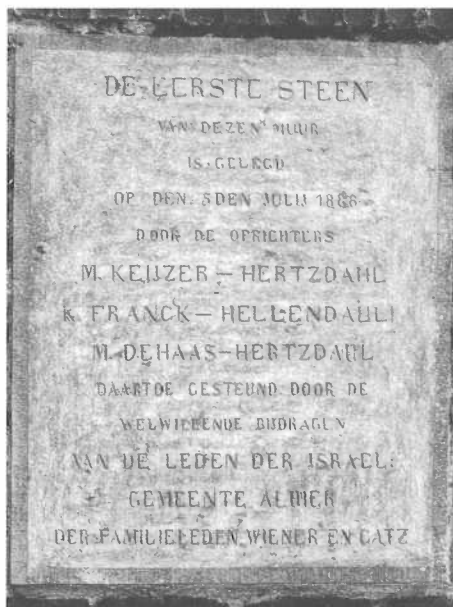 DE EERSTE STEEN
VAN DEZEN MUUR
IS GELEGD
OP DEN 5DEN JULIJ 1868
DOOR DE OPRICHTERS
M. KEIJZER – HERTZDAHL
K. FRANCK – HELLENDAHL
M. DEHAAS – HERTZDAHL
DAARTOE GESTEUND DOOR DE
WELWILLENDE BIJDRAGEN
VAN DE LEDEN DER ISRAEL:
GEMEENTE
DER FAMILIELEDEN WIENER EN CATZ